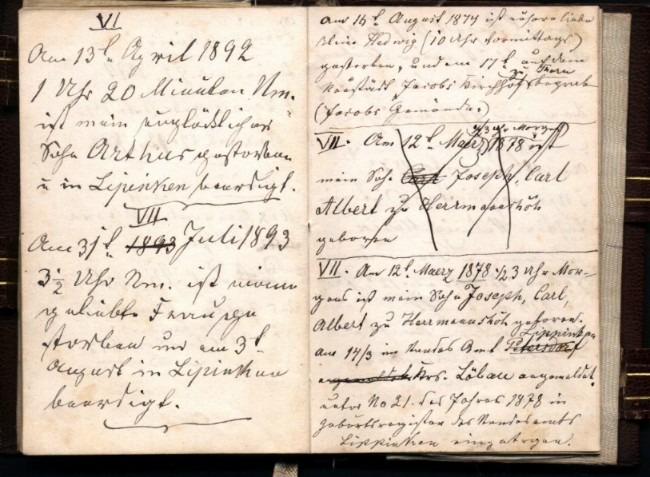 VI
Am 13t April 1892
1 Uhr 20 Minuten Nm.
ist mein unglücklicher
Sohn Arthur gestorben
u in Lipinken beerdigt.
VII
Am 31t 1893 Juli 1893
3 1/2 Uhr Nm. ist meine
geliebte Frau ge
storben und am 3t
August in Lipinken
beerdigt.
Am 16t August 1874 ist unsere liebe
Hedwig (10 Uhr Vormittags)
gestorben, und am 17t auf dem
Neustädt Jacobs Kirchhof zu Thorn begrab
(Jacobs Gemeinde.)
VII. Am 12t Maerz 1878 ist
mein Sohn Carl Joseph, Carl
Albert zu Herrmannshöh
geboren
VII. Am 12t Maerz 1878 1/2 3 Uhr Mor-
gens ist mein Sohn Joseph, Carl,
Albert zu Herrmannshöh geboren.
Am 14/3 im Standes Amt Petersdorf Lippinken
Krs. Löbau angemeldet.
unter No 21. des Jahres 1878 in
Geburtsregister des Standesamts
Lippinken eingetragen.